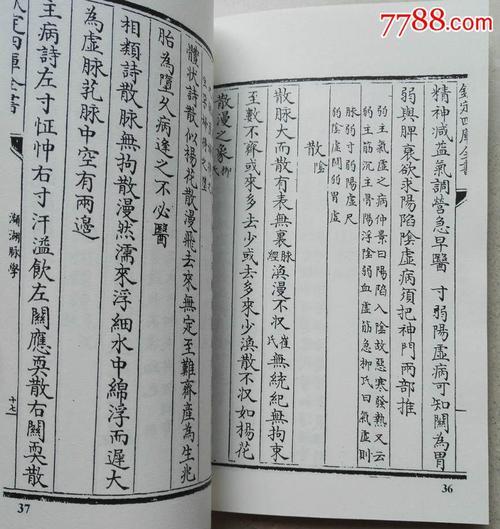 7788.com
欽定四庫全書
精神減益氣調營急早醫 寸弱陽虛病可知關為胃
弱與脾衰欲求陽陷陰虛病須把神門兩部推
弱主氣虛之病仲景曰陽陷入陰故惡寒發熱又云
弱主筋沉主骨陽浮陰弱血虛筋急柳氏曰氣虛則
脉弱寸弱陽虛尺
弱陰虛關弱胃虛
散陰
散脉大而散有表無裏脉經渙漫不收崔氏無統紀無拘束
至數不齊或來多去少或去多來少渙散不收如楊花
散漫之象柳氏
36
體狀詩散似楊花散漫飛去來無定至難齊產為生兆
胎為墮久病逢之不必醫
相類詩散脉無拘散漫然濡來浮細水中綿浮而遲大
為虛脉芤脉中空有兩邊
主病詩左寸怔忡右寸汗溢飲左關應耎散右關耎散
定四庫全書
瀕湖脉學
十七
37